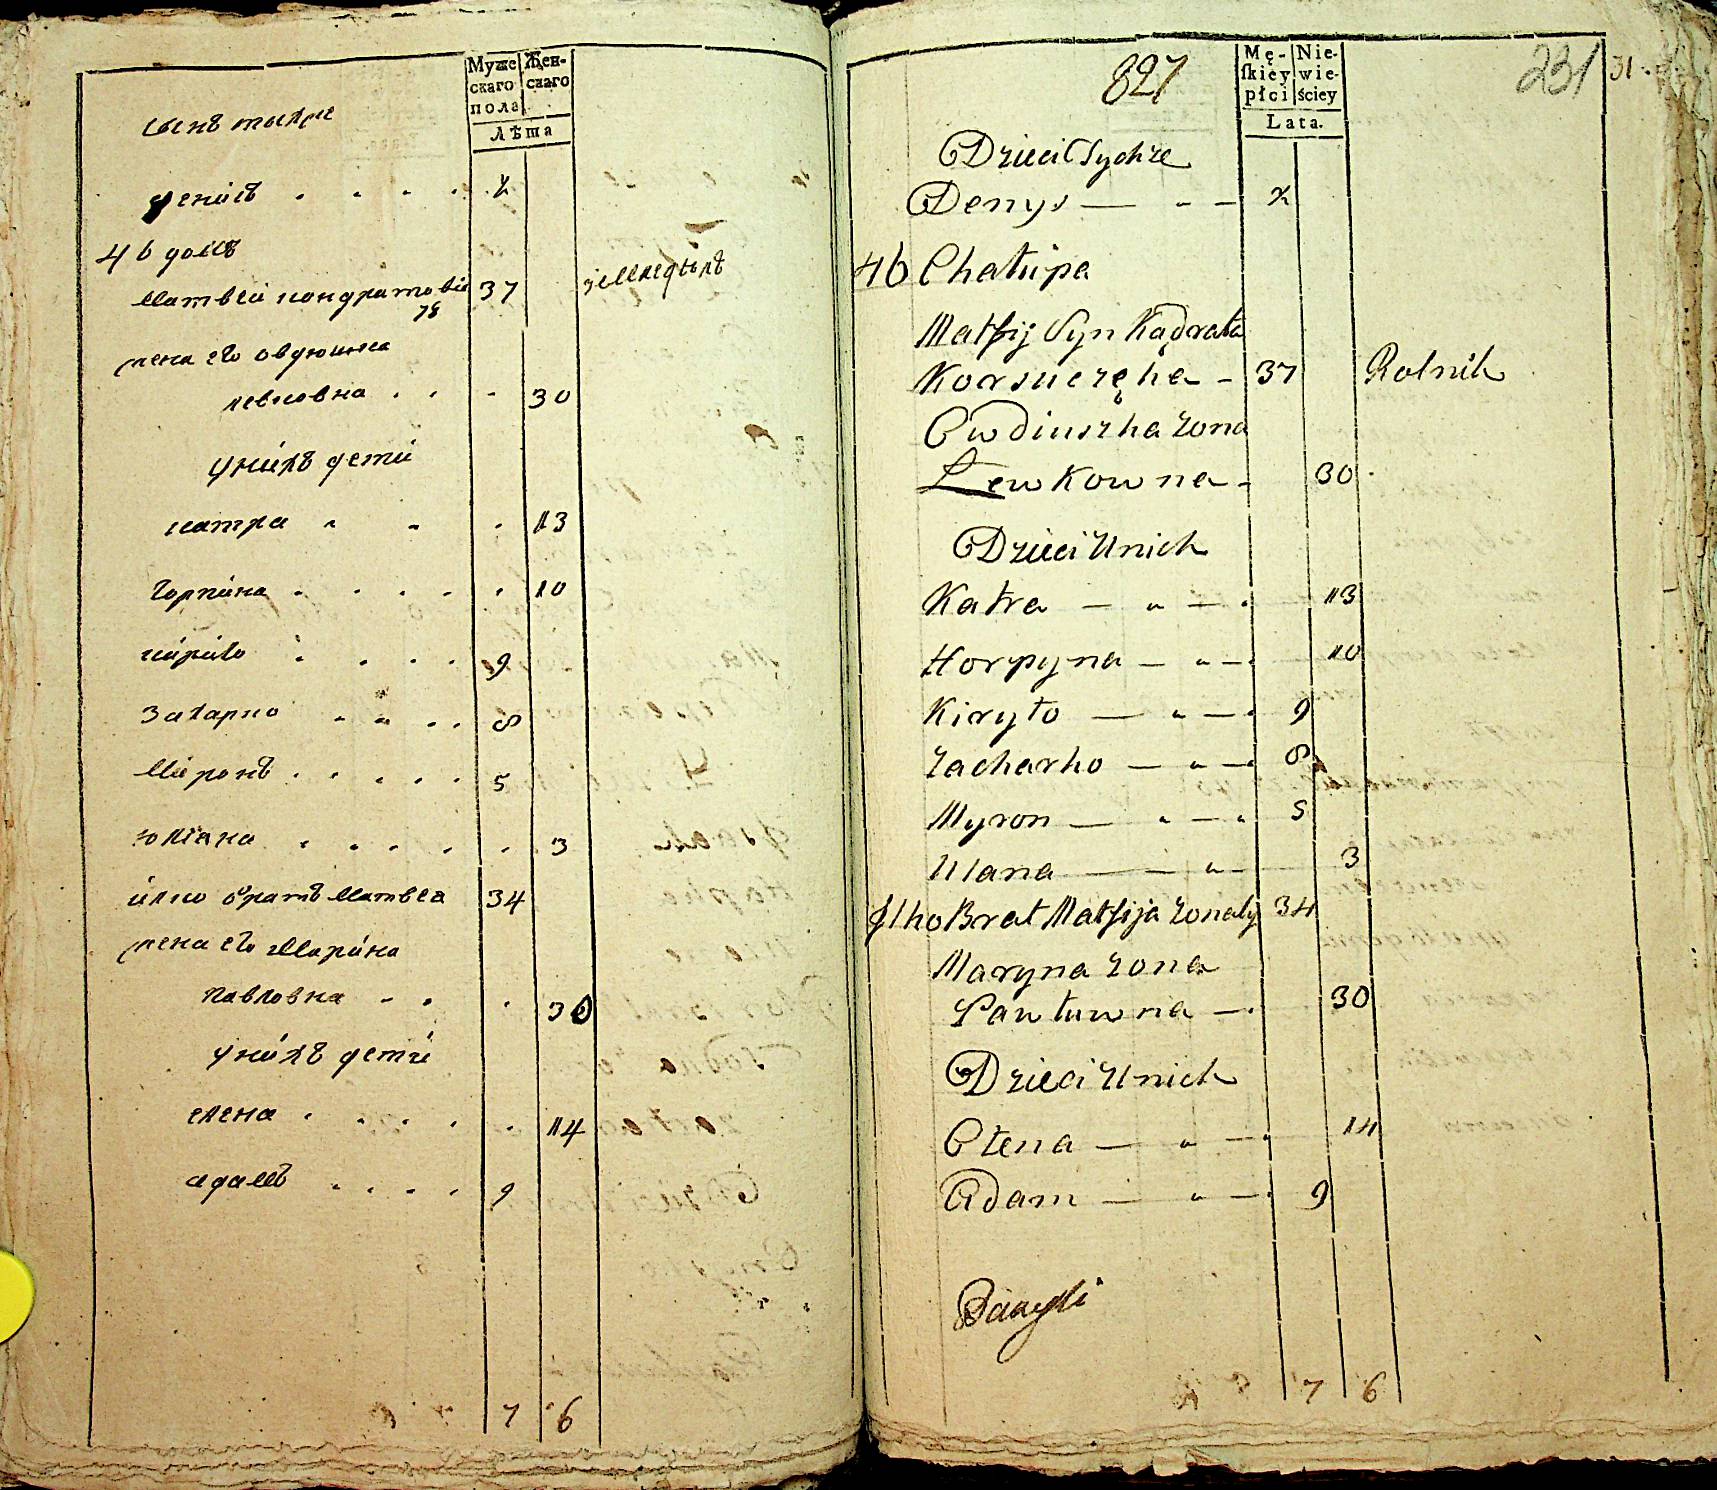 Муже Жен-
скаго скаго
пола
Лѣта
сынъ тыхже
денисъ . . . . . 2
46 домъ
Матвеи кондратовъ 37 земледелъ
жена его овдюшка
левковна . . - 30
унихъ дети
катра . . . 13
горпина . . . . . 10
кирило . . . . 9
Захарко . . . . 8
Миронъ . . . . . 5
юлиана . . . . . . 3
илко братъ Матвеа 34
жена его Марина
павловна - . . 30
унихъ дети
елена . . . . . 14
адамъ . . . . 9
7 6
827
231
31
Mę- Nie-
skiey wie-
płci ściey
Lata.
Dzieci Tychże
Denys — „ — 2
46 Chałupa
Matfij Syn Kądrata
37 Rolnik
Owdiuszka żona
Lewkowna - 30
Dzieci Unich
Katra — „ — . 13
Horpyna — „ — . 10
Kiryło — „ — . 9
Zacharko — „ — 8
Myron — „ — . 5
Ulana — „ — 3
Ilko Brat Matfija żonaty 34
Maryna żona
Pawłuwna — . 30
Dzieci Unich
Ołena — „ — . 14
Adam — „ — . 9
7 6